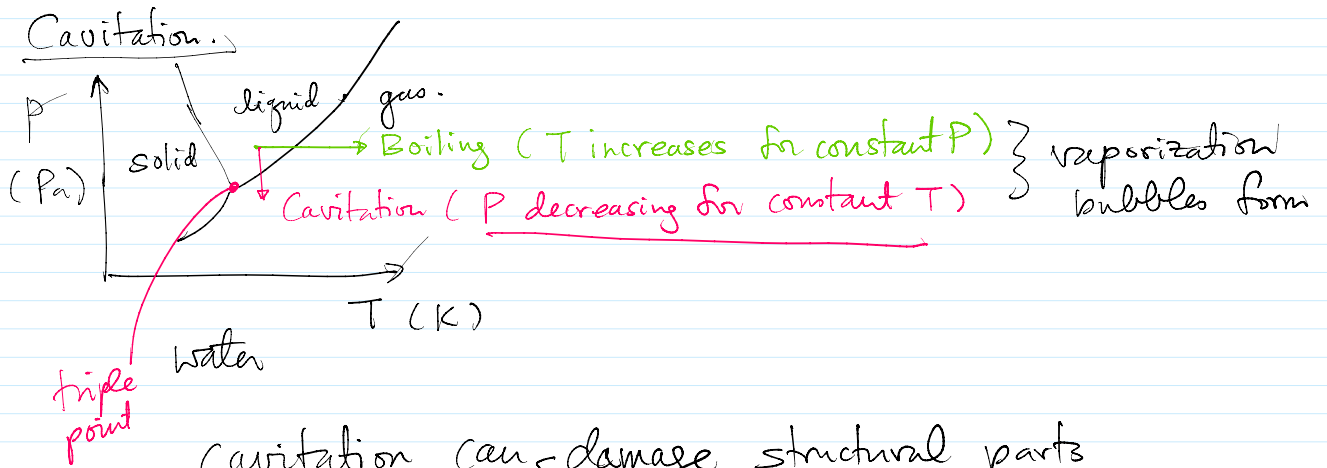 Cavitation.
P
(Pa)
solid
liquid
gas.
Boiling (T increases for constant P)
Cavitation (P decreasing for constant T)
vaporization
bubbles form
T (K)
water
triple
point
cavitation can damage structural parts